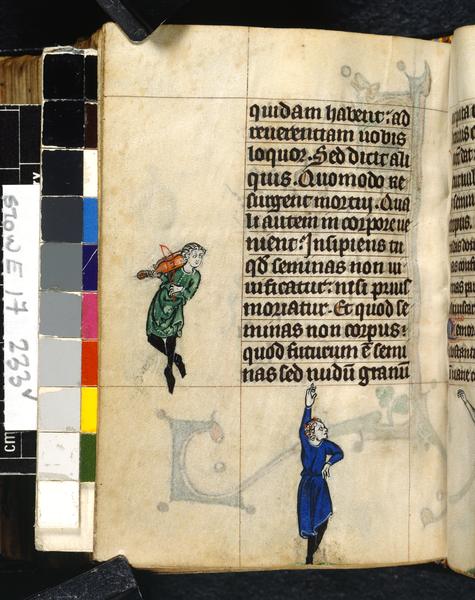 quidam haberit: ad
reuerentiam uobis
loquor. Sed dicit ali
quis. Quomodo re
surgent mortui. Qua
li autem in corpore ue
nient: Insipiens tu
qd̄ seminas non ui
uificatur: nisi prius
moriatur. Et quod se
minas non corpus:
quod futurum ē semi
nas sed nudū granū
STOW E 17 233v
cm